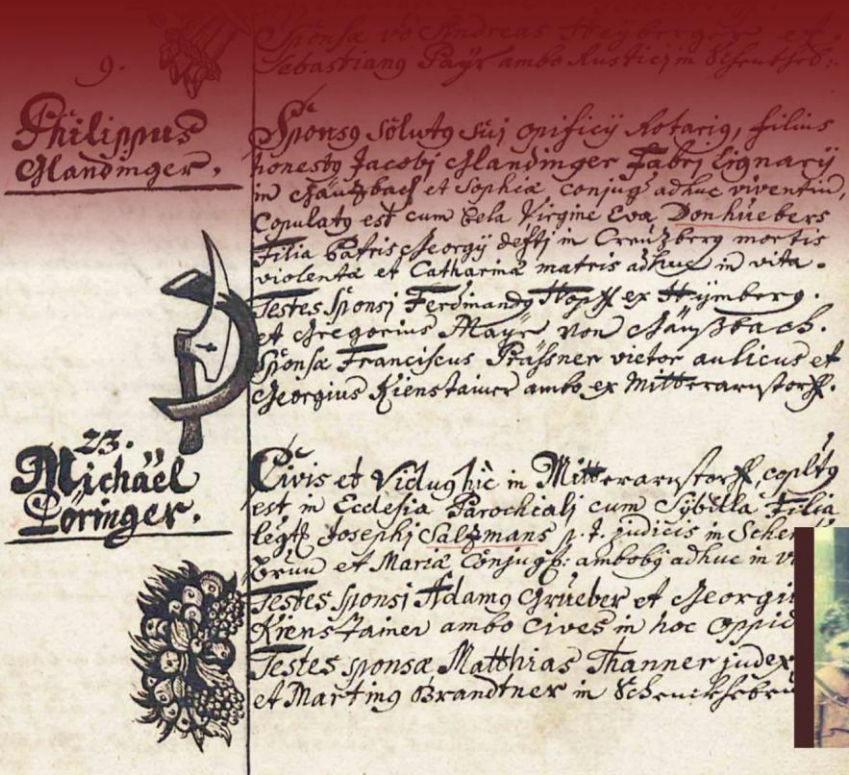 Sponsæ vo Andreas Heyberger et
Sebastiang Payr ambo Rusticj in Schenkheb:
9.
Philippus
Glandinger.
Sponsg Solutg Suj opificij Rotarig, filius
honestg Jacobj Glandinger Fabrj Lignarij
in Gäußbach et Sophiæ conjug adhuc viventiu,
Copulatg est cum Virgine Eva Donhüebers
Filia Patris Georgij in Creuzberg mortis
violentæ et Catharinæ matris adhuc in vita.
Testes Sponsj Ferdinandg Hopff ex Heymberg.
et Gregorius Mayr von Gäußbach.
Sponsæ Franciscus Prässner vietor aulicus et
Georgius Kienstainer ambo ex Mitterarnstorff.
23.
Michäel
Löringer.
Civis et Vidug hic in Mitterarnstorff, copltg
est in Ecclesia Parochialj cum Sybilla Filia
Josephj Salzmans p. t. judicis in
brun et Mariæ Conjug: ambobg adhuc in
Testes Sponsj Adamg Grüeber et
Kienstainer ambo cives in hoc
Testes sponsæ Matthias Thanner judex
et Marting Brandtner in